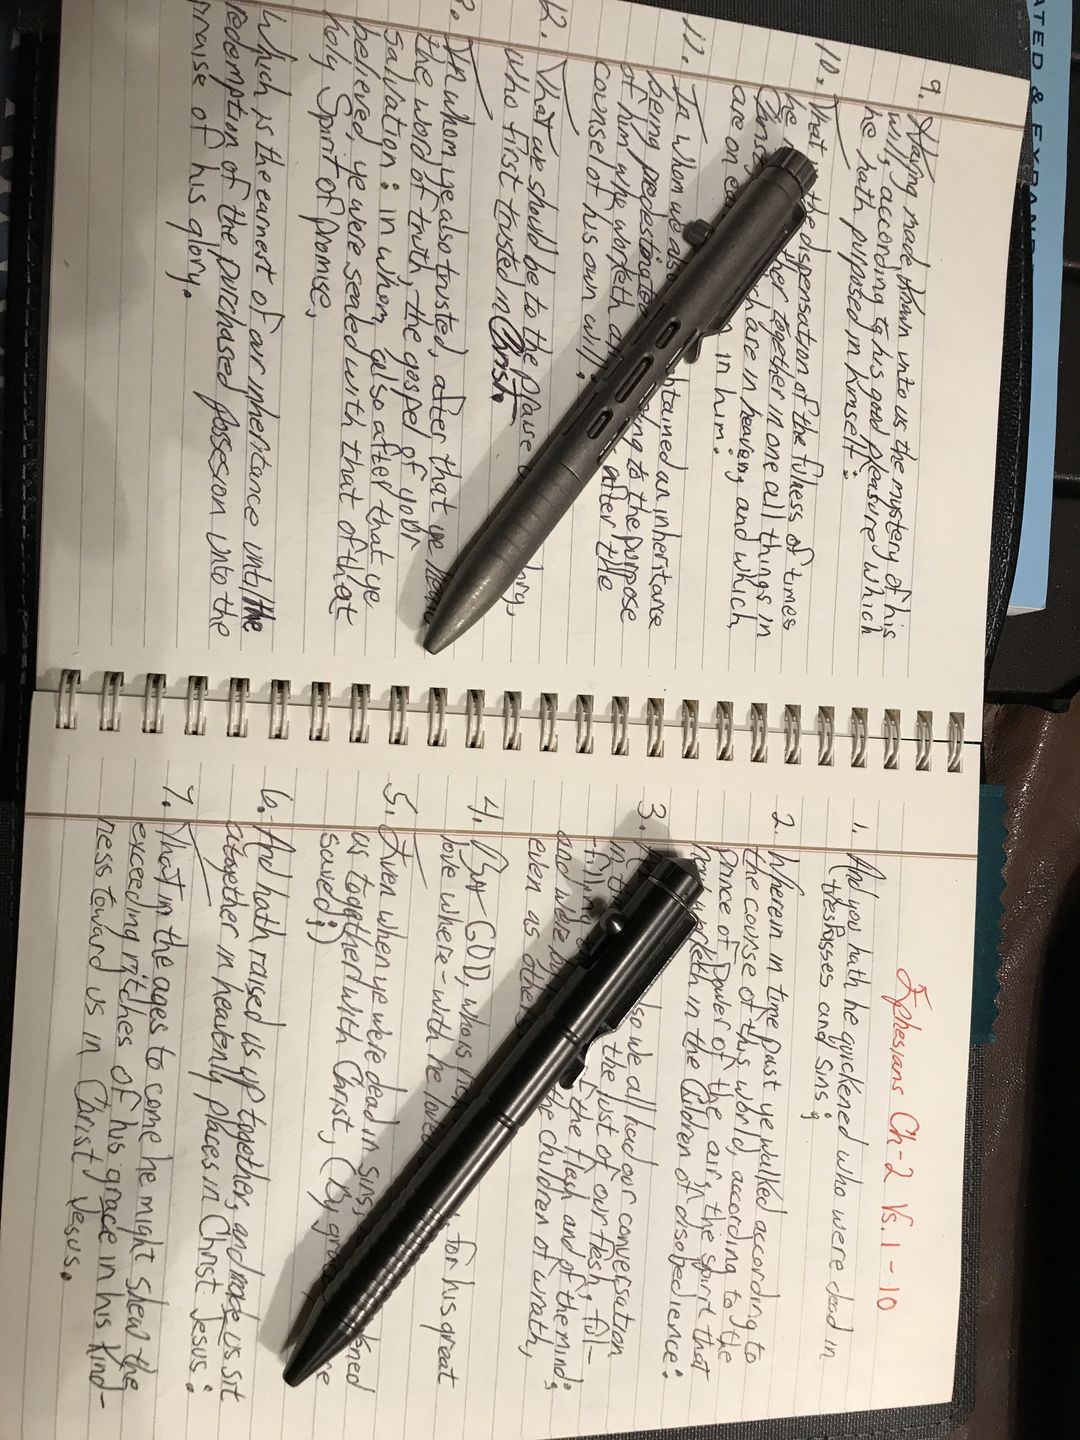 ATED & EXPAND
9. Having made known unto us the mystery of his
will, according to his good pleasure which
he hath purposed in himself:
10. That in the dispensation of the fulness of times
he together in one all things in
Christ, which are in heaven, and which
are on in him:
11. In whom we also obtained an inheritance
being predestinated to the purpose
of him who worketh after the
counsel of his own will:
12. That we should be to the praise
who first trusted in Christ.
In whom ye also trusted, after that ye
the word of truth, the gospel of your
salvation: in whom, also after that ye
believed, ye were sealed with that of that
holy Spirit of promise,
Which is the earnest of our inheritance until the
redemption of the purchased possession unto the
praise of his glory.
Ephesians Ch-2 Vs. 1-10
1. And you hath he quickened who were dead in
trespasses and sins;
2. Wherein in time past ye walked according to
the course of this world, according to the
prince of power of the air, the spirit that
now worketh in the children of disobedience:
3. also we all had our conversation
in the lust of our flesh, fil-
filling the flesh and of the mind;
and were the children of wrath,
even as others
4. But GOD, who is for his great
love where-with he loved
5. Even when ye were dead in sins,
us together with Christ, (by
saved;)
6. And hath raised us up together, and made us sit
together in heavenly places in Christ Jesus:
7. That in the ages to come he might shew the
exceeding ritches of his grace in his kind-
ness toward us in Christ Jesus.